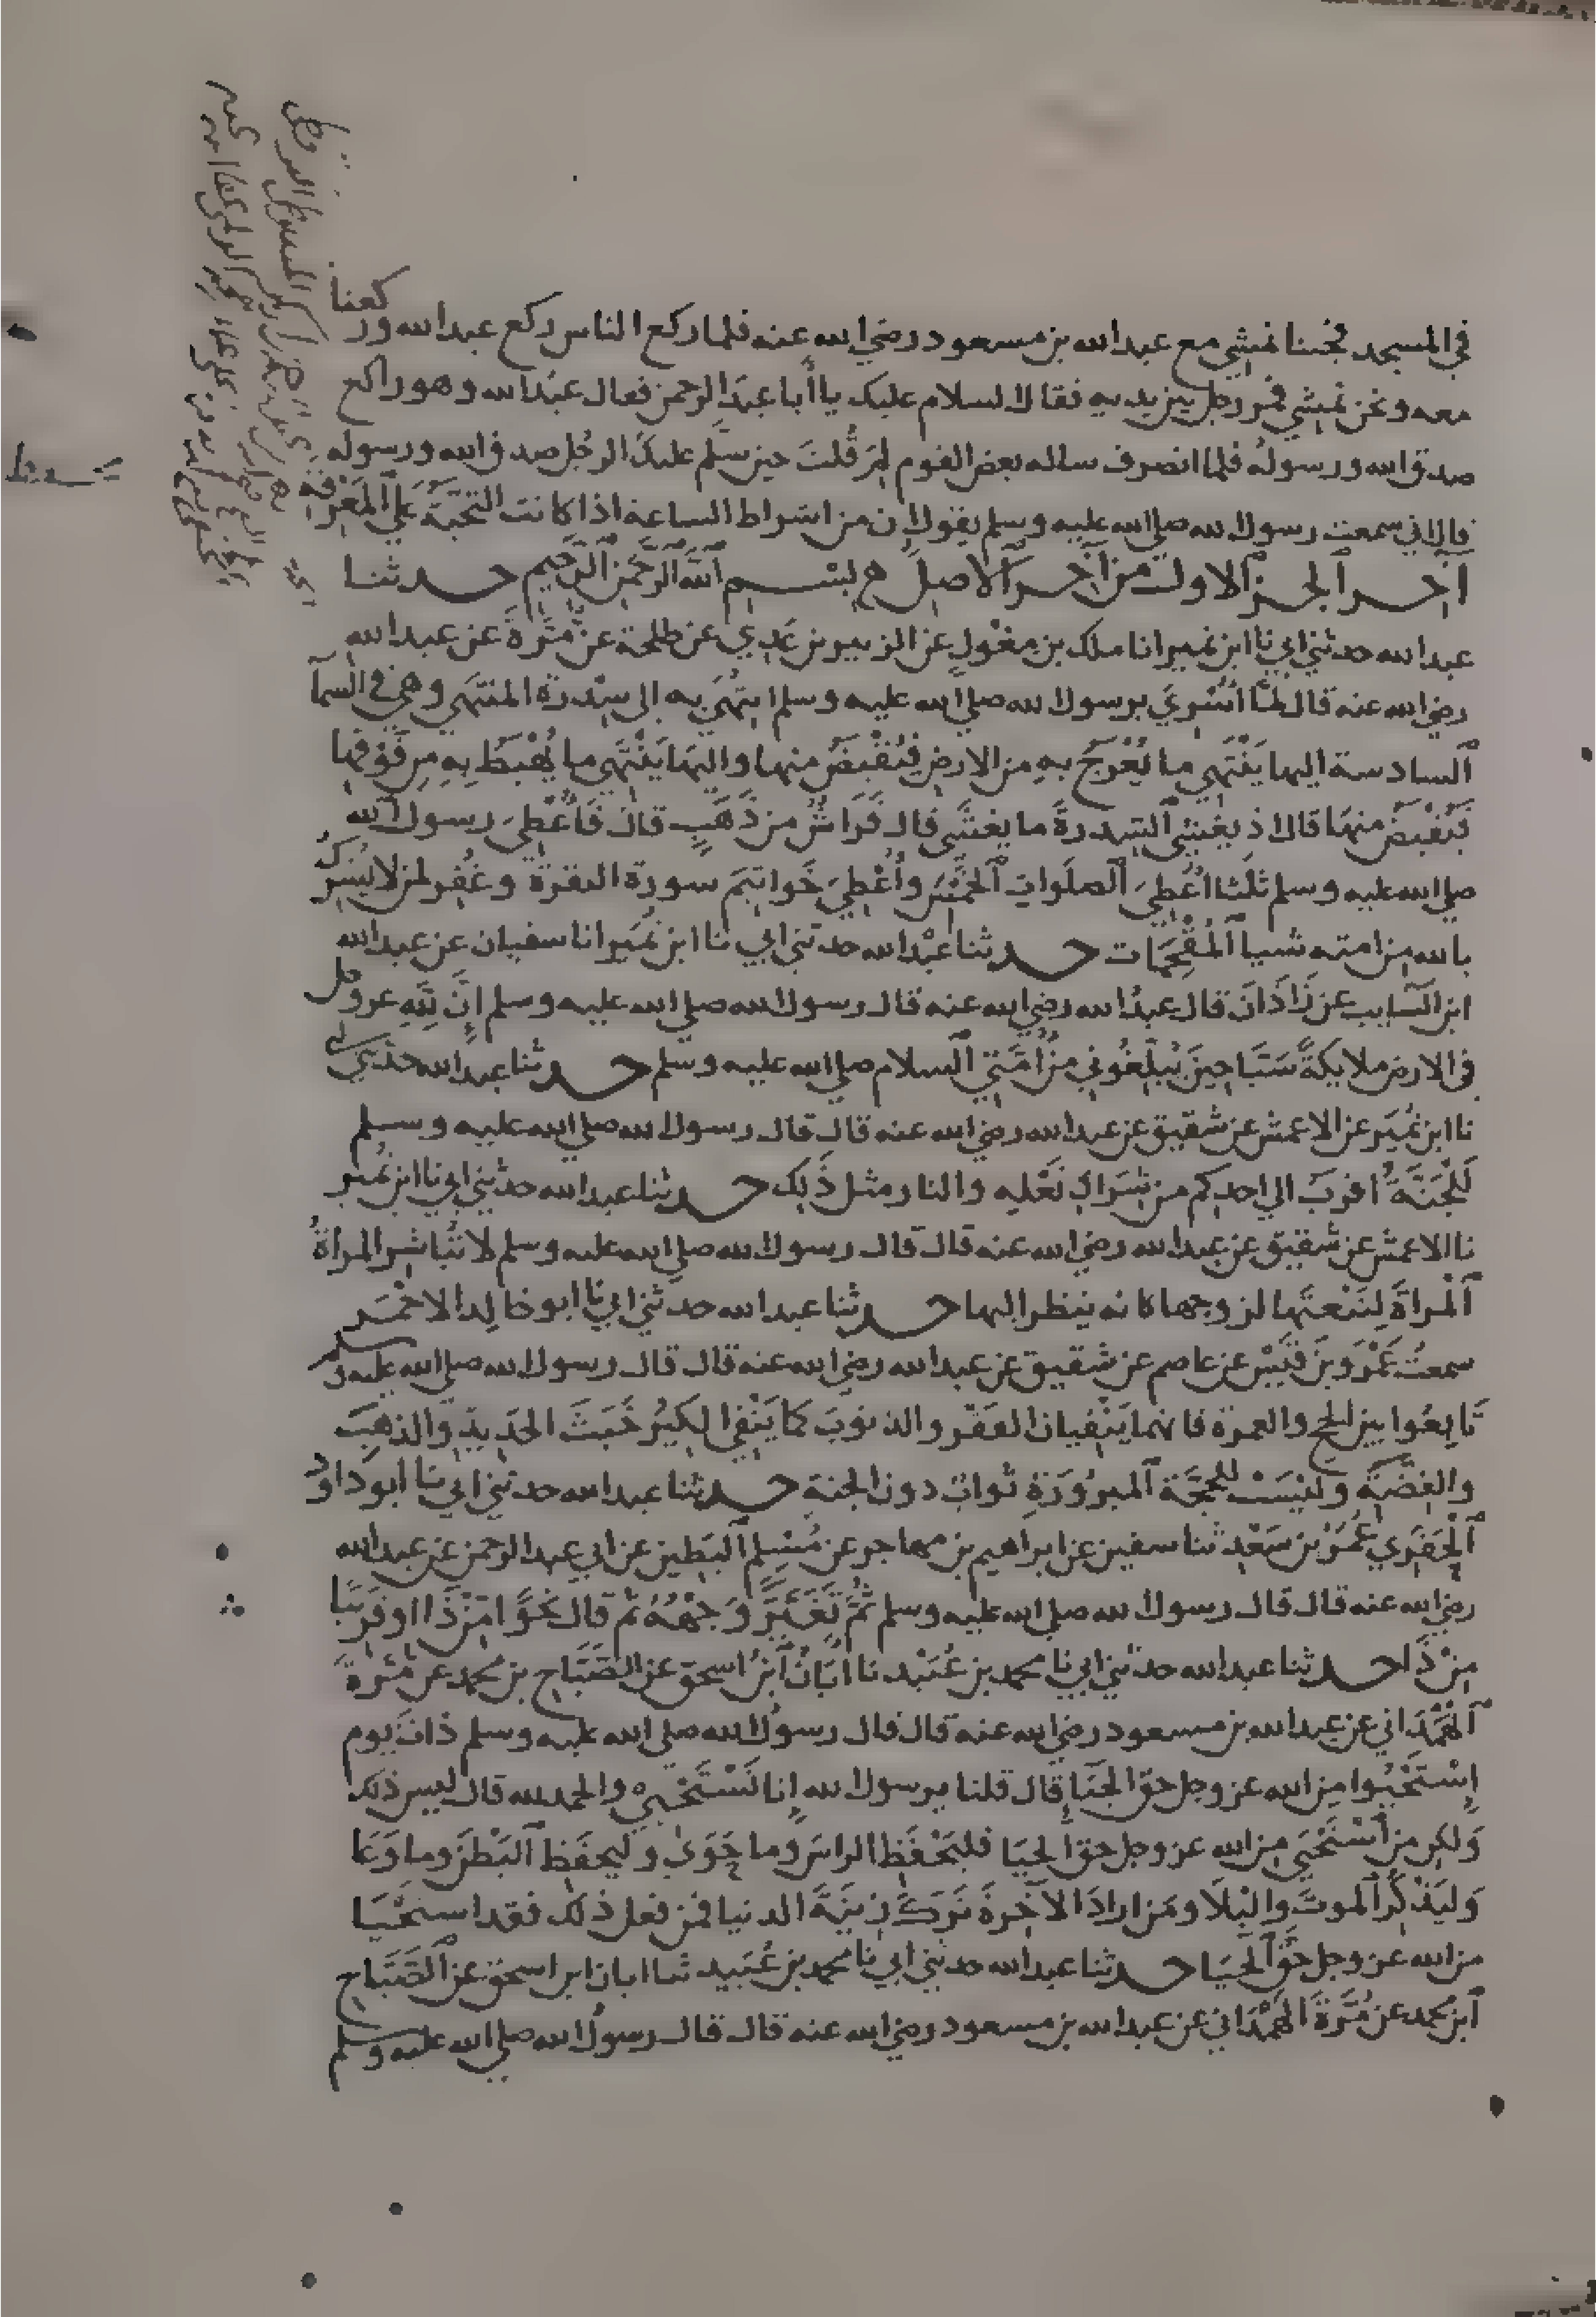 في المسجد فجئنا نمشي مع عبد الله بن مسعود رضي الله عنه فلما ركع الناس ركع عبد الله وركعنا
معه ونحن نمشي فمر رجل بين يديه فقال السلام عليك يا أبا عبد الرحمن فقال عبد الله وهو راكع
صدق الله ورسوله فلما انصرف ساله بعض القوم لم قلت حين سلم عليك الرجل صدق الله ورسوله
قال اني سمعت رسول الله صلى الله عليه وسلم يقول ان من اشراط الساعة اذا كانت التحية على المعرفة
آخر الجزء الاول من آخر الاصل بسم الله الرحمن الرحيم حدثنا
عبد الله حدثني ابي نا ابن نمير انا ملك بن مغول عن الزبير بن عدي عن طلحة عن مرة عن عبد الله
رضي الله عنه قال لما أسري برسول الله صلى الله عليه وسلم انتهي به الى سدرة المنتهى وهي في السمآ
السادسة اليها ينتهي ما يعرج به من الارض فيقبض منها واليها ينتهي ما يهبط به من فوقها
فيقبض منها قال اذ يغشى السدرة ما يغشى قال فراش من ذهب قال فأعطي رسول الله
صلى الله عليه وسلم ثلثا أعطي الصلوات الخمس وأعطي خواتيم سورة البقرة وغفر لمن لا يشرك
بالله من امته شيا المقحمات حدثنا عبد الله حدثني ابي نا ابن نمير انا سفيان عن عبد الله
ابن السايب عن زاذان قال عبد الله رضي الله عنه قال رسول الله صلى الله عليه وسلم إن لله عز وجل
في الارض ملايكة سياحين يبلغوني من أمتي السلام صلى الله عليه وسلم حدثنا عبد الله حدثني ابي
نا ابن نمير عن الاعمش عن شقيق عن عبد الله رضي الله عنه قال قال رسول الله صلى الله عليه وسلم
للجنة اقرب الى احدكم من شراك نعله والنار مثل ذلك حدثنا عبد الله حدثني ابي نا ابن نمير
نا الاعمش عن شقيق عن عبد الله رضي الله عنه قال قال رسول الله صلى الله عليه وسلم لا تباشر المراة
المراة لتنعتها لزوجها كانه ينظر اليها حدثنا عبد الله حدثني ابي نا ابو خالد الاحمر
سمعت عمرو بن قيس عن عاصم عن شقيق عن عبد الله رضي الله عنه قال قال رسول الله صلى الله عليه وسلم
تابعوا بين الحج والعمرة فانهما ينفيان الفقر والذنوب كما ينفي الكير خبث الحديد والذهب
والفضة وليست للحجة المبرورة ثواب دون الجنة حدثنا عبد الله حدثني ابي نا ابو داود
الحفري عمر بن سعد ثنا سفين عن ابراهيم بن مهاجر عن مسلم البطين عن ابي عبد الرحمن عن عبد الله
رضي الله عنه قال قال رسول الله صلى الله عليه وسلم ثم تغير وجهه ثم قال نحوا من ذا او قريبا
من ذا حدثنا عبد الله حدثني ابي نا محمد بن عبيد نا ابان ابن اسحق عن الصباح بن محمد عن مرة
الهمداني عن عبد الله بن مسعود رضي الله عنه قال قال رسول الله صلى الله عليه وسلم ذات يوم
استحيوا من الله عز وجل حق الحيا قال قلنا يرسول الله إنا نستحيي والحمد لله قال ليس ذلك
ولكن من أستحيى من الله عز وجل حق الحيا فليحفظ الراس وما حوى وليحفظ البطن وما وعا
وليذكر الموت والبلا ومن اراد الآخرة ترك زينة الدنيا فمن فعل ذلك فقد استحيا
من الله عز وجل حق الحيا حدثنا عبد الله حدثني ابي نا محمد بن عبيد ثنا ابان بن اسحق عن الصباح
ابن محمد عن مرة الهمداني عن عبد الله بن مسعود رضي الله عنه قال قال رسول الله صلى الله عليه وسلم